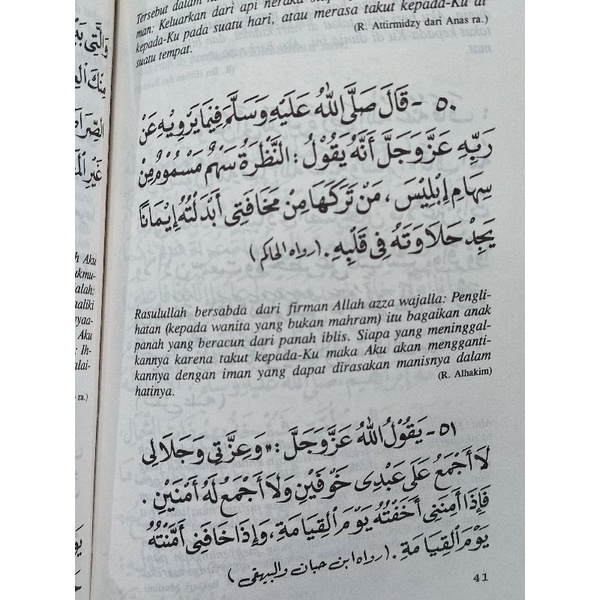 Tersebut dalam
man: Keluarkan dari api neraka
kepada-Ku pada suatu hari, atau merasa takut kepada-Ku di
suatu tempat.
(R. Attirmidzy dari Anas ra.)
٥٠ - قَالَ صَلَّى اللهُ عَلَيْهِ وَسَلَّمَ فِيْمَا يَرْوِيْهِ عَنْ
رَبِّهِ عَزَّوَجَلَّ أَنَّهُ يَقُوْلُ : اَلنَّظْرَةُ سَهْمٌ مَسْمُوْمٌ مِنْ
سِهَامِ إِبْلِيْسَ ، مَنْ تَرَكَهَا مِنْ مَخَافَتِي أَبْدَلْتُهُ إِيْمَانًا
يَجِدُ حَلَاوَتَهُ فِي قَلْبِهِ . (رواه الحاكم)
Rasulullah bersabda dari firman Allah azza wajalla: Pengli-
hatan (kepada wanita yang bukan mahram) itu bagaikan anak
panah yang beracun dari panah iblis. Siapa yang meninggal-
kannya karena takut kepada-Ku maka Aku akan mengganti-
kannya dengan iman yang dapat dirasakan manisnya dalam
hatinya.
(R. Alhakim)
٥١ - يَقُوْلُ اللهُ عَزَّوَجَلَّ : «وَعِزَّتِي وَجَلَالِي
لَا أَجْمَعُ عَلَى عَبْدِى خَوْفَيْنِ وَلَا أَجْمَعُ لَهُ أَمْنَيْنِ .
فَإِذَا أَمِنَنِي أَخَفْتُهُ يَوْمَ الْقِيَامَةِ ، وَإِذَا خَافَنِي أَمَّنْتُهُ
يَوْمَ الْقِيَامَةِ . (رواه ابن حبان والبيهقي)
41